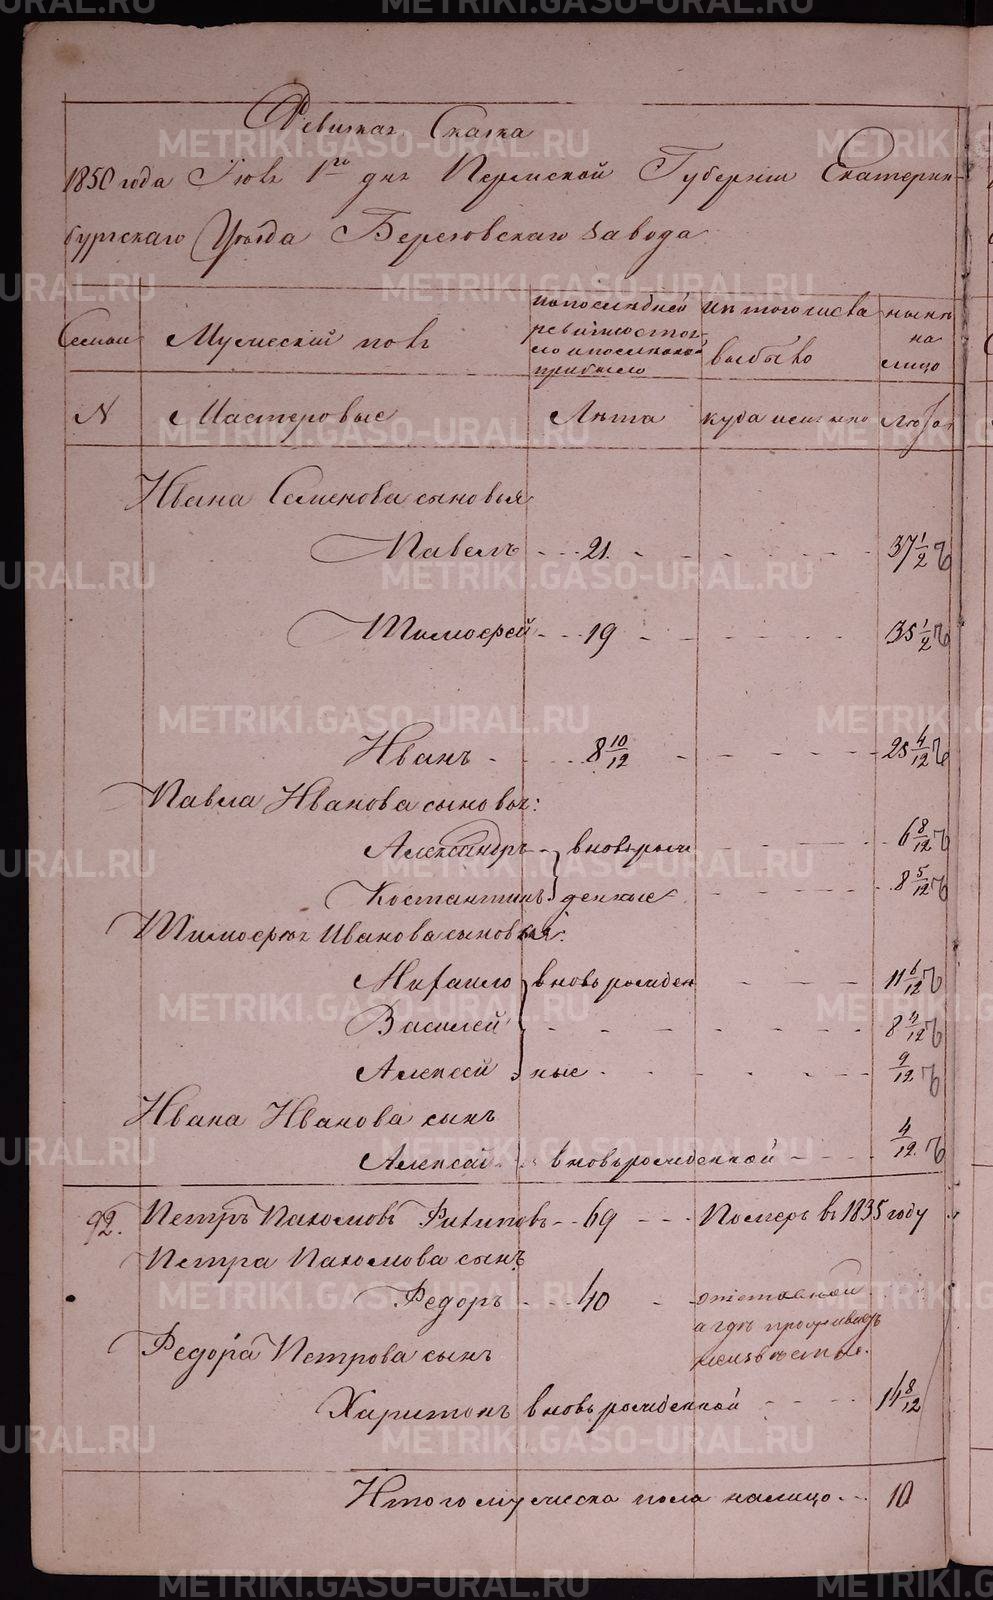 Ревизкая Сказка
1850 года Июня 1го дня Пермской Губернии Екатерин-
бургскаго Уезда Березовскаго завода
Семьи
Мужеский полъ
по последней ревизии состояло и после того прибыло
из того числа выбыло
ныне на лицо
N
Мастеровые
Лета
куда именно
Лета
Ивана Семенова сыновья
Павелъ - - 21. - - - 37 1/2
Тимофей - - 19 - - - 35 1/2
Иванъ - - 8 10/12 - - - 25 4/12
Павла Иванова сыновья:
Александръ - вновь рож - - 6 8/12
Костантинъ денные - - 8 5/12
Тимофея Иванова сыновья:
Михаило вновь рожден - - 11 6/12
Василей - - - 8 4/12
Алексей ные - - - 9/12
Ивана Иванова сынъ
Алексей вновьрожденной - - 4/12
92. Петръ Пахомовъ Филиповъ - - 69 - - Померъ въ 1835 году
Петра Пахомова сынъ
Федоръ - - 40 - отставной
а где проживаетъ
неизвестно.
Федора Петрова сынъ
Харитонъ вновь рожденной - - 14 8/12
Итого мужеска пола налицо - - 10
METRIKI.GASO-URAL.RU